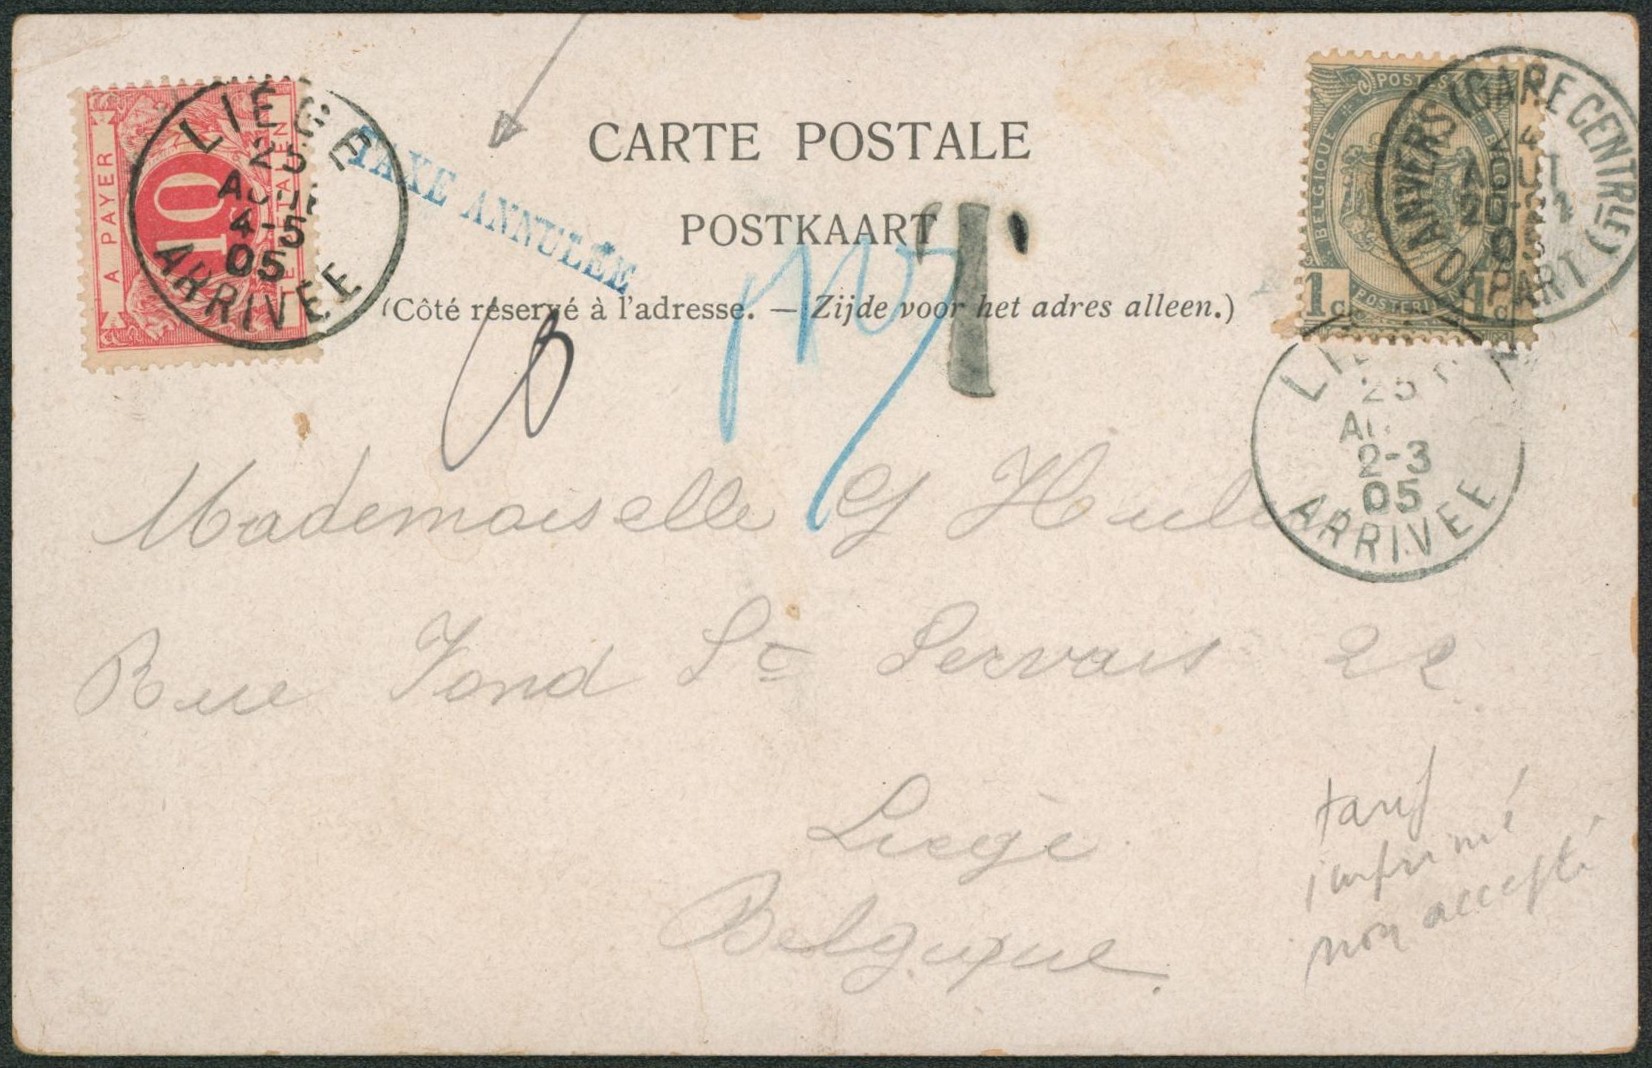 A PAYER
10
TE BETALEN
LIEGE
25
AOUT
4-5
05
ARRIVEE
TAXE ANNULÉE
CARTE POSTALE
POSTKAART
(Côté réservé à l'adresse. — Zijde voor het adres alleen.)
T
POSTES
BELGIQUE
1c 1c
POSTERIJEN
ANVERS (GARE CENTRALE)
AOUT
DEPART
25
2-3
05
ARRIVEE
Mademoiselle G
Rue Fond St Servais 22
Liège
Belgique.
tarif
imprimé
non accepté